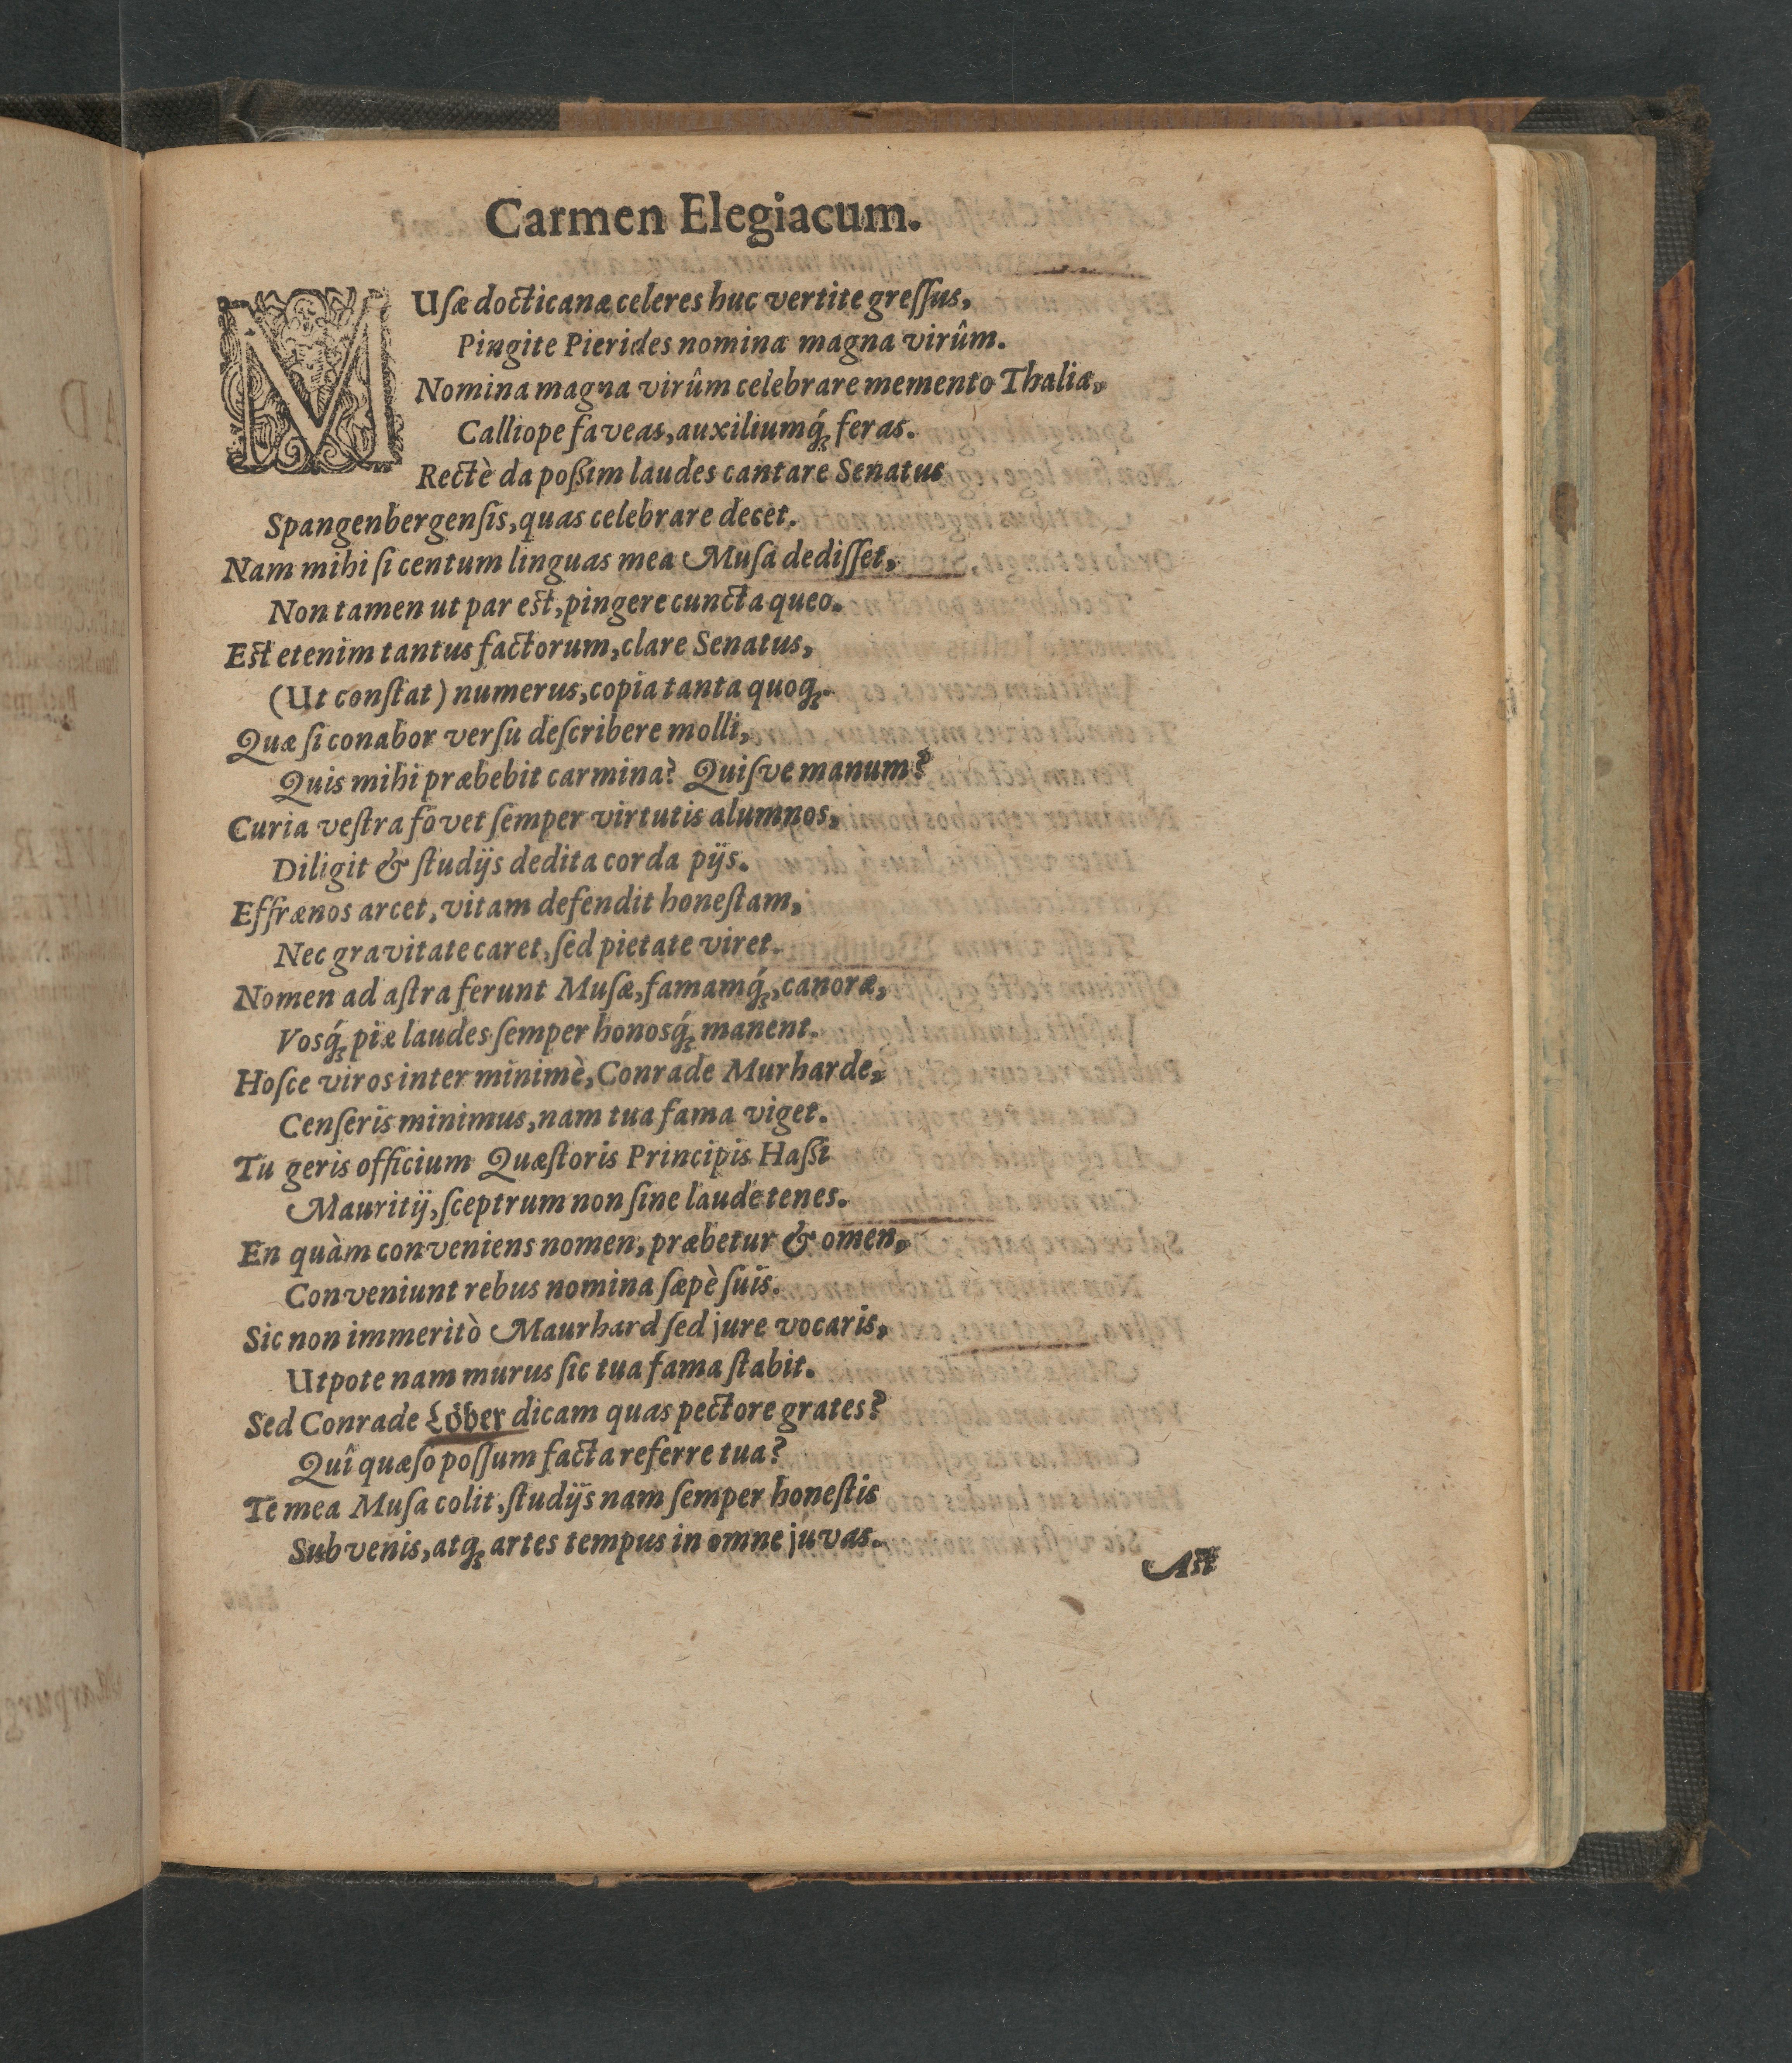 Carmen Elegiacum.
MUſæ docticanæ celeres huc vertite greſſus,
Pingite Pierides nomina magna virûm.
Nomina magna virûm celebrare memento Thalia,
Calliope faveas, auxiliumq́; feras.
Rectè da poßim laudes cantare Senatus
Spangenbergenſis, quas celebrare decet.
Nam mihi ſi centum linguas mea Muſa dediſſet,
Non tamen ut par eſt, pingere cuncta queo.
Eſt etenim tantus factorum, clare Senatus,
(Ut conſtat) numerus, copia tanta quoq;.
Quæ ſi conabor verſu deſcribere molli,
Quis mihi præbebit carmina? Quiſve manum?
Curia veſtra fovet ſemper virtutis alumnos,
Diligit & ſtudijs dedita corda pijs.
Effrænos arcet, vitam defendit honeſtam,
Nec gravitate caret, ſed pietate viret.
Nomen ad aſtra ferunt Muſæ, famamq́;, canoræ,
Vosq́; piæ laudes ſemper honosq́; manent.
Hoſce viros inter minimè, Conrade Murharde,
Cenſeris minimus, nam tua fama viget.
Tu geris officium Quæſtoris Principis Haßi
Mauritij, ſceptrum non ſine laude tenes.
En quàm conveniens nomen, præbetur & omen,
Conveniunt rebus nomina ſæpè ſuis.
Sic non immeritò Maurhard ſed jure vocaris,
Utpote nam murus ſic tua fama ſtabit.
Sed Conrade Löber dicam quas pectore grates?
Quî quæſo poſſum facta referre tua?
Te mea Muſa colit, ſtudijs nam ſemper honeſtis
Subvenis, atq; artes tempus in omne juvas.
Aſt